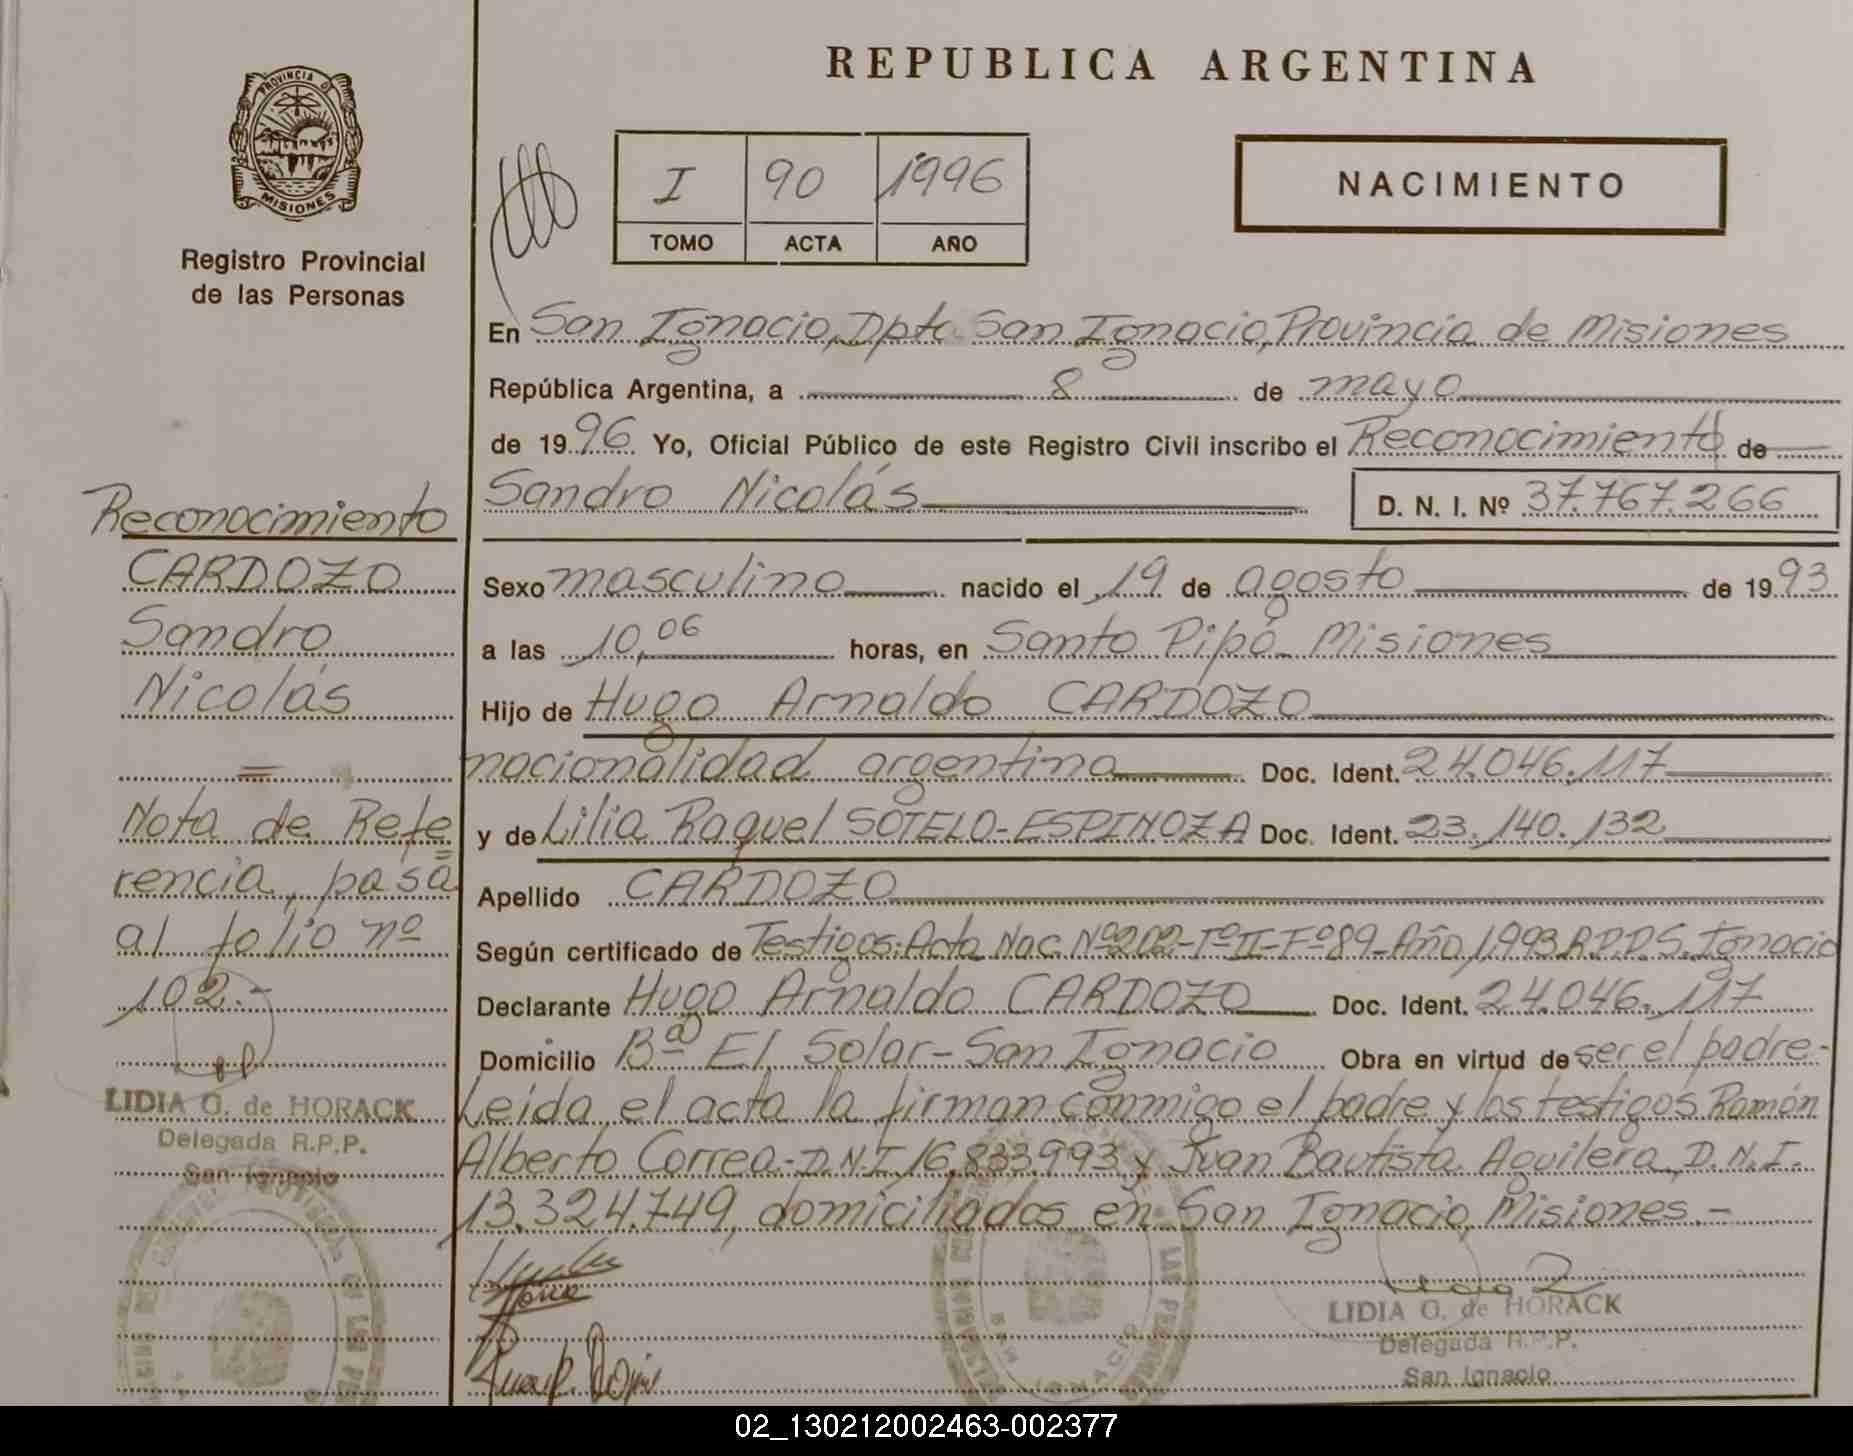 REPUBLICA ARGENTINA
PROVINCIA DE
MISIONES
Registro Provincial
de las Personas
I 90 1996
TOMO ACTA AÑO
NACIMIENTO
En San Ignacio, Dpto San Ignacio, Provincia de Misiones
República Argentina, a 8 de mayo
de 1996 Yo, Oficial Público de este Registro Civil inscribo el Reconocimiento de
Sandro Nicolás D. N. I. Nº 37.767.266
Sexo masculino nacido el 19 de agosto de 1993
a las 10,06 horas, en Santo Pipó - Misiones
Hijo de Hugo Arnaldo CARDOZO
nacionalidad argentina Doc. Ident. 24.046.117
y de Lilia Raquel SOTELO-ESPINOZA Doc. Ident. 23.140.132
Apellido CARDOZO
Según certificado de Testigos: Acta Nac. Nº 202-Tº II-Fº 89-Año 1993 R.P.P.S. Ignacio
Declarante Hugo Arnaldo CARDOZO Doc. Ident. 24.046.117
Domicilio Bº El Solar - San Ignacio Obra en virtud de ser el padre-
Leída el acta la firman conmigo el padre y los testigos Ramón
Alberto Correa - D.N.I 16.833.993 y Juan Bautista Aguilera, D.N.I.
13.324.749, domiciliados en San Ignacio, Misiones.-
LIDIA O. de HORACK
Delegada R.P.P.
San Ignacio
Reconocimiento
CARDOZO
Sandro
Nicolás
Nota de Refe=
rencia, pasa
al folio nº
102.-
LIDIA O. de HORACK
Delegada R.P.P.
San Ignacio
02_130212002463-002377